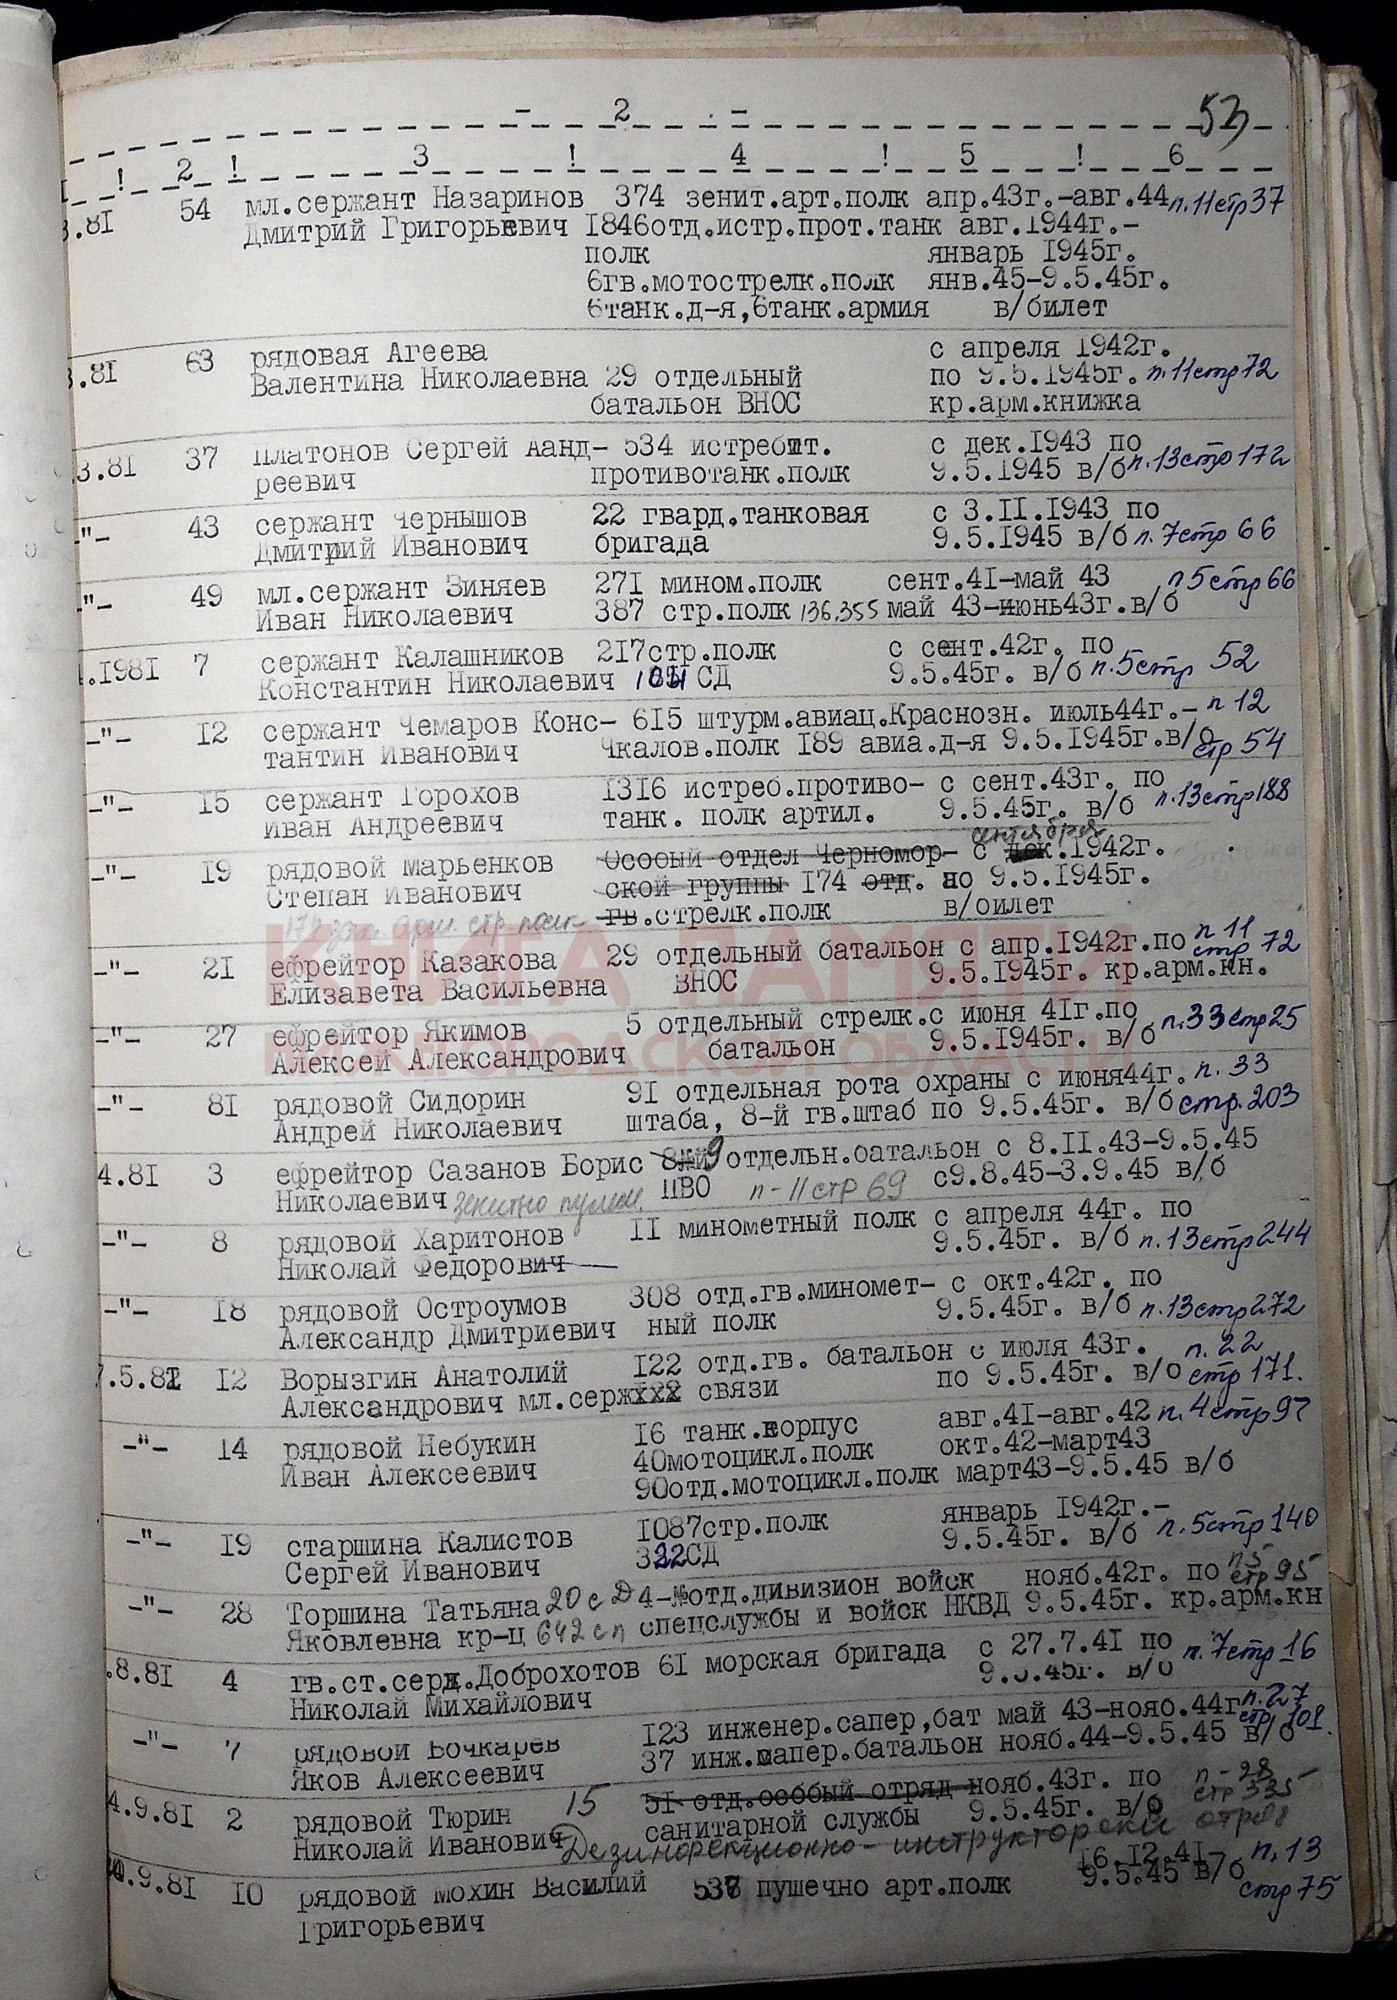 - 2 -
53
! 2 ! 3 ! 4 ! 5 ! 6
3.81 54 мл.сержант Назаринов 374 зенит.арт.полк апр.43г.-авг.44 п.11стр37
Дмитрий Григорьевич 1846отд.истр.прот.танк авг.1944г.-
полк январь 1945г.
6гв.мотострелк.полк янв.45-9.5.45г.
6танк.д-я,6танк.армия в/билет
3.81 63 рядовая Агеева с апреля 1942г.
Валентина Николаевна 29 отдельный по 9.5.1945г. п.11стр72
батальон ВНОС кр.арм.книжка
3.81 37 Платонов Сергей Аанд- 534 истребит. с дек.1943 по
реевич противотанк.полк 9.5.1945 в/б п.13стр172
-"- 43 сержант Чернышов 22 гвард.танковая с 3.II.1943 по
Дмитрий Иванович бригада 9.5.1945 в/б п.7стр66
-"- 49 мл.сержант Зиняев 271 мином.полк сент.41-май 43 п5стр66
Иван Николаевич 387 стр.полк 136,355 май 43-июнь43г.в/б
.1981 7 сержант Калашников 217стр.полк с сент.42г. по
Константин Николаевич СД 9.5.45г. в/б п.5стр 52
-"- 12 сержант Чемаров Конс- 615 штурм.авиац.Краснозн. июль44г.- п 12
тантин Иванович Чкалов.полк 189 авиа.д-я 9.5.1945г.в/б стр 54
-"- 15 сержант Горохов 1316 истреб.противо- с сент.43г. по
Иван Андреевич танк. полк артил. 9.5.45г. в/б п.13стр188
сентября
-"- 19 рядовой Марьенков Особый отдел Черномор- с дек.1942г.
Степан Иванович ской группы 174 отд. по 9.5.1945г.
гв.стрелк.полк в/билет
арм. стр. полк
-"- 21 ефрейтор Казакова 29 отдельный батальон с апр.1942г.по п 11 стр 72
Елизавета Васильевна ВНОС 9.5.1945г. кр.арм.кн.
КНИГА ПАМЯТИ
НИЖЕГОРОДСКОЙ ОБЛАСТИ
-"- 27 ефрейтор Якимов 5 отдельный стрелк.с июня 41г.по п.33стр25
Алексей Александрович батальон 9.5.1945г. в/б
-"- 81 рядовой Сидорин 91 отдельная рота охраны с июня44г. п. 33
Андрей Николаевич штаба, 8-й гв.штаб по 9.5.45г. в/б стр.203
4.81 3 ефрейтор Сазанов Борис 9 отдельн.батальон с 8.II.43-9.5.45
Николаевич зенитно пулем. ПВО п-11стр 69 с9.8.45-3.9.45 в/б
-"- 8 рядовой Харитонов II минометный полк с апреля 44г. по
Николай Федорович 9.5.45г. в/б п.13стр244
-"- 18 рядовой Остроумов 308 отд.гв.миномет- с окт.42г. по
Александр Дмитриевич ный полк 9.5.45г. в/б п.13стр272
7.5.81 12 Ворызгин Анатолий 122 отд.гв. батальон с июля 43г. п.22
Александрович мл.сержххх связи по 9.5.45г. в/б стр171.
-"- 14 рядовой Небукин 16 танк.корпус авг.41-авг.42 п.4стр97
Иван Алексеевич 40мотоцикл.полк окт.42-март43
90отд.мотоцикл.полк март43-9.5.45 в/б
-"- 19 старшина Калистов 1087стр.полк январь 1942г.-
Сергей Иванович 322СД 9.5.45г. в/б п.5стр140
-"- 28 Торшина Татьяна 20 с Д 4-№отд.дивизион войск нояб.42г. по п5 стр95
Яковлевна кр-ц 642 сп спецслужбы и войск НКВД 9.5.45г. кр.арм.кн
.8.81 4 гв.ст.серж.Доброхотов 61 морская бригада с 27.7.41 по п.7стр16
Николай Михайлович 9.5.45г. в/б
-"- 7 рядовой Бочкарев 123 инженер.сапер,бат май 43-нояб.44г п.27
Яков Алексеевич 37 инж.сапер.батальон нояб.44-9.5.45 в/б стр101.
4.9.81 2 рядовой Тюрин 15 51 отд.особый отряд нояб.43г. по п-28
Николай Иванович санитарной службы 9.5.45г. в/б стр335
Дезинфекционно-инструкторский отряд
.9.81 10 рядовой Мохин Василий пушечно арт.полк 16.12.41
9.5.45 в/б п.13
Григорьевич стр75